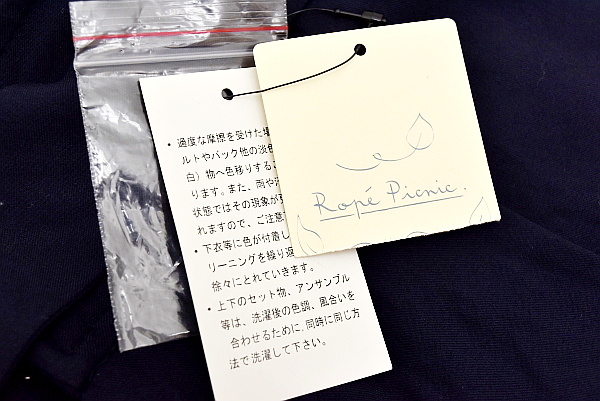 ・過度な摩擦を受けた場
ルトやバック他の淡色
白）物へ色移りするこ
ります。また、雨や汗
状態ではその現象が
れますので、ご注意
・下衣等に色が付着し
リーニングを繰り返
徐々にとれていきます。
・上下のセット物、アンサンブル
等は、洗濯後の色調、風合いを
合わせるために、同時に同じ方
法で洗濯して下さい。
Ropé Picnic.